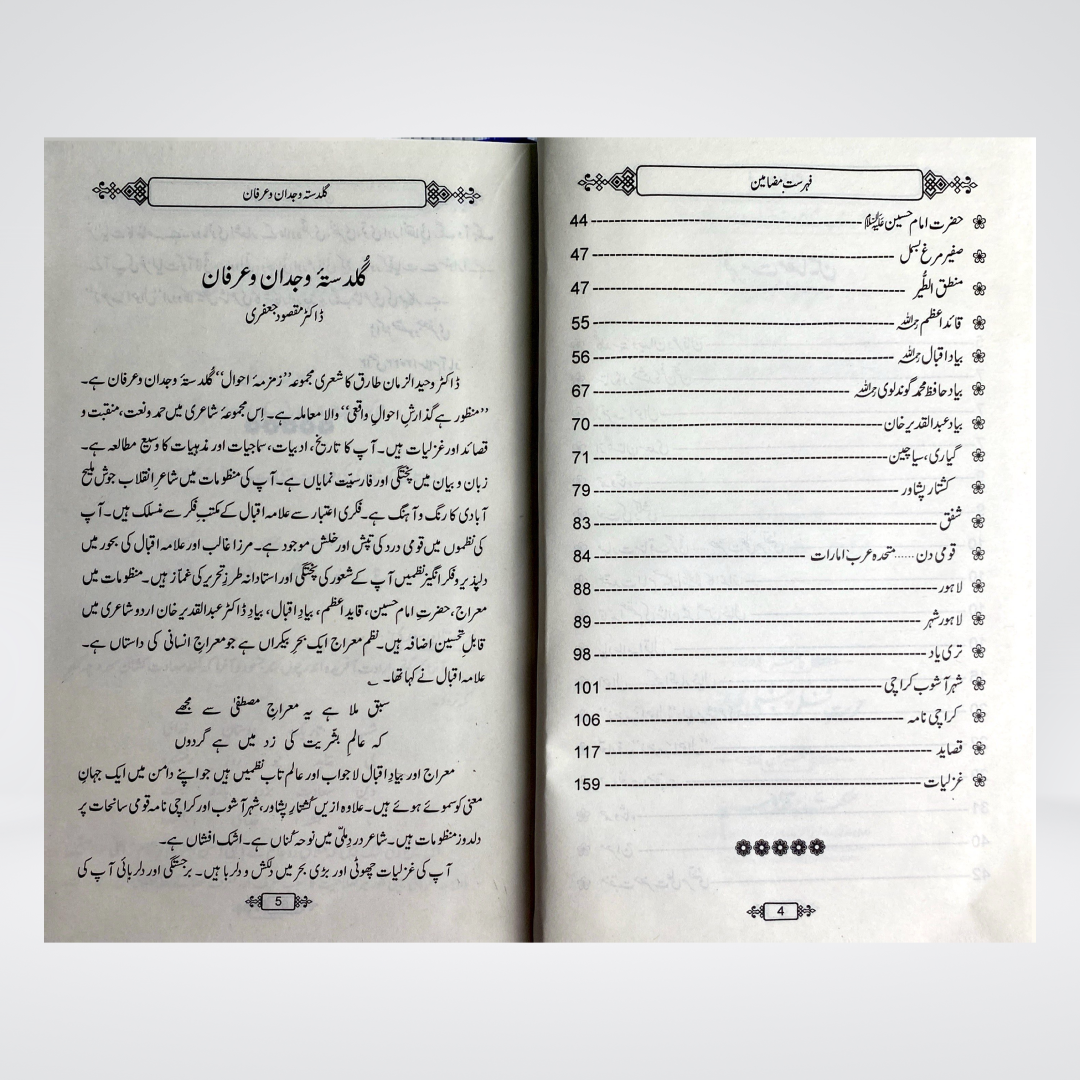 فہرست مضامین
حضرت امام حسین علیہ السلام 44
صفیر مرغ بسمل 47
منطق الطُّیر 47
قائد اعظم رحمہ اللہ 55
بیاد اقبال رحمہ اللہ 56
بیاد حافظ محمد گوندلوی رحمہ اللہ 67
بیاد عبدالقدیر خان 70
گیاری، سیاچین 71
کشتار پشاور 79
شفق 83
قومی دن...... متحدہ عرب امارات 84
لاہور 88
لاہور شہر 89
تری یاد 98
شہر آشوب کراچی 101
کراچی نامہ 106
قصاید 117
غزلیات 159
4
گلدستہ وجدان و عرفان
گُلدستۂ وجدان و عرفان
ڈاکٹر مقصود جعفری
ڈاکٹر وحید الزمان طارق کا شعری مجموعہ ”زمزمۂ احوال“ گُلدستۂ وجدان و عرفان ہے۔
”منظور ہے گذارشِ احوالِ واقعی“ والا معاملہ ہے۔ اِس مجموعۂ شاعری میں حمد و نعت، منقبت و
قصائد اور غزلیات ہیں۔ آپ کا تاریخ، ادبیات، سماجیات اور مذہبیات کا وسیع مطالعہ ہے۔
زبان و بیان میں پختگی اور فارسیّت نمایاں ہے۔ آپ کی منظومات میں شاعرِ انقلاب جوش ملیح
آبادی کا رنگ و آہنگ ہے۔ فکری اعتبار سے علامہ اقبال کے مکتبِ فکر سے منسلک ہیں۔ آپ
کی نظموں میں قومی درد کی تپش اور خلش موجود ہے۔ مرزا غالب اور علامہ اقبال کی بحور میں
دلپذیر و فکر انگیز نظمیں آپ کے شعور کی پختگی اور استادانہ طرزِ تحریر کی غماز ہیں۔ منظومات میں
معراج، حضرتِ امام حسین، قایدِ اعظم، بیادِ اقبال، بیادِ ڈاکٹر عبدالقدیر خان اردو شاعری میں
قابلِ تحسین اضافہ ہیں۔ نظم معراج ایک بحرِ بیکراں ہے جو معراجِ انسانی کی داستاں ہے۔
علامہ اقبال نے کہا تھا۔
سبق ملا ہے یہ معراجِ مصطفیٰ سے مجھے
کہ عالمِ بشریت کی زد میں ہے گردوں
معراج اور بیادِ اقبال لاجواب اور عالم تاب نظمیں ہیں جو اپنے دامن میں ایک جہانِ
معنی کو سموئے ہوئے ہیں۔ علاوہ ازیں کُشتارِ پشاور، شہر آشوب اور کراچی نامہ قومی سانحات پر
دلدوز منظومات ہیں۔ شاعر دردِ ملّی میں نوحہ کُناں ہے۔ اشک افشاں ہے۔
آپ کی غزلیات چھوٹی اور بڑی بحر میں دلکش و دلربا ہیں۔ برجستگی اور دلربائی آپ کی
5